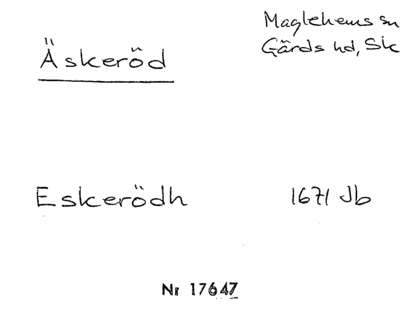 Äskeröd
Maglehems sn
Gärds hd, Sk
Eskerödh
1671 Jb
Nr 17647